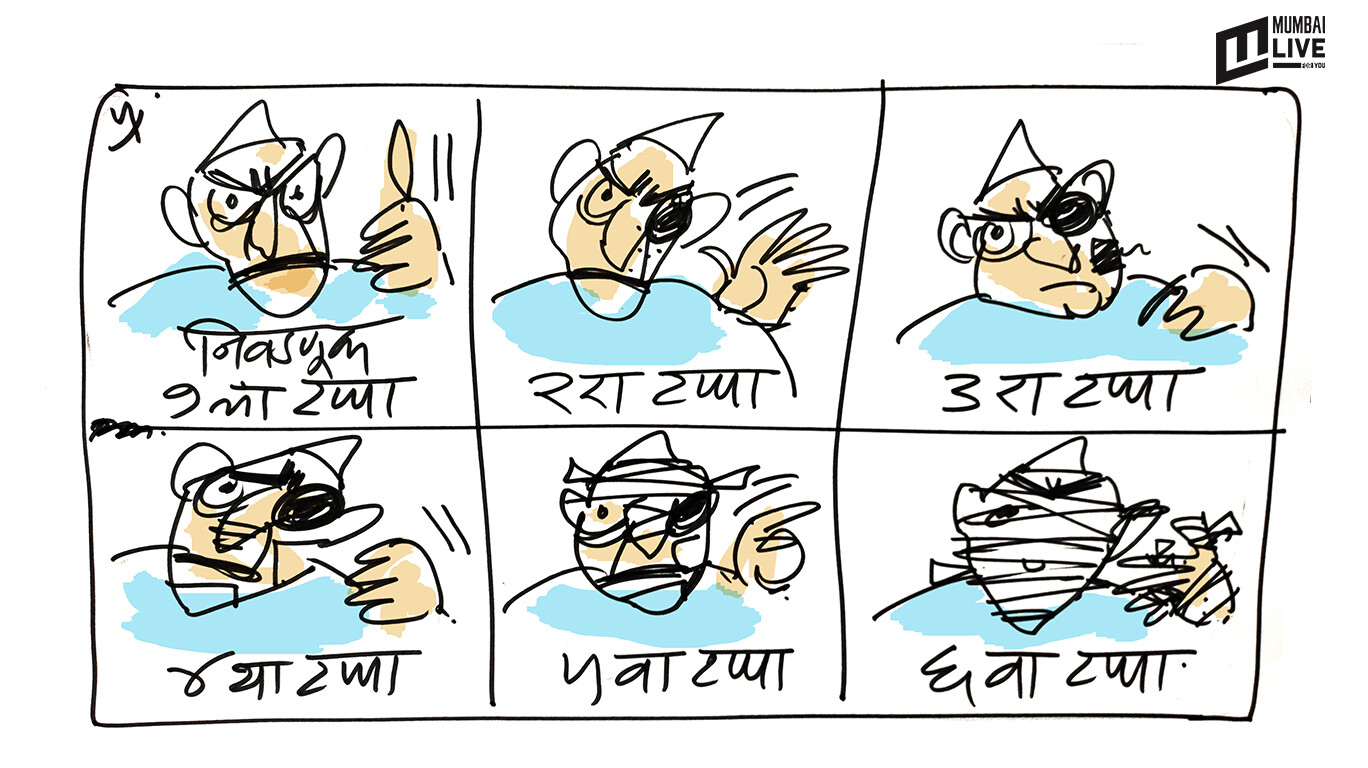 MUMBAI
LIVE
FOR YOU
निवडणूक
१ला टप्पा
२रा टप्पा
३रा टप्पा
४था टप्पा
५वा टप्पा
६वा टप्पा